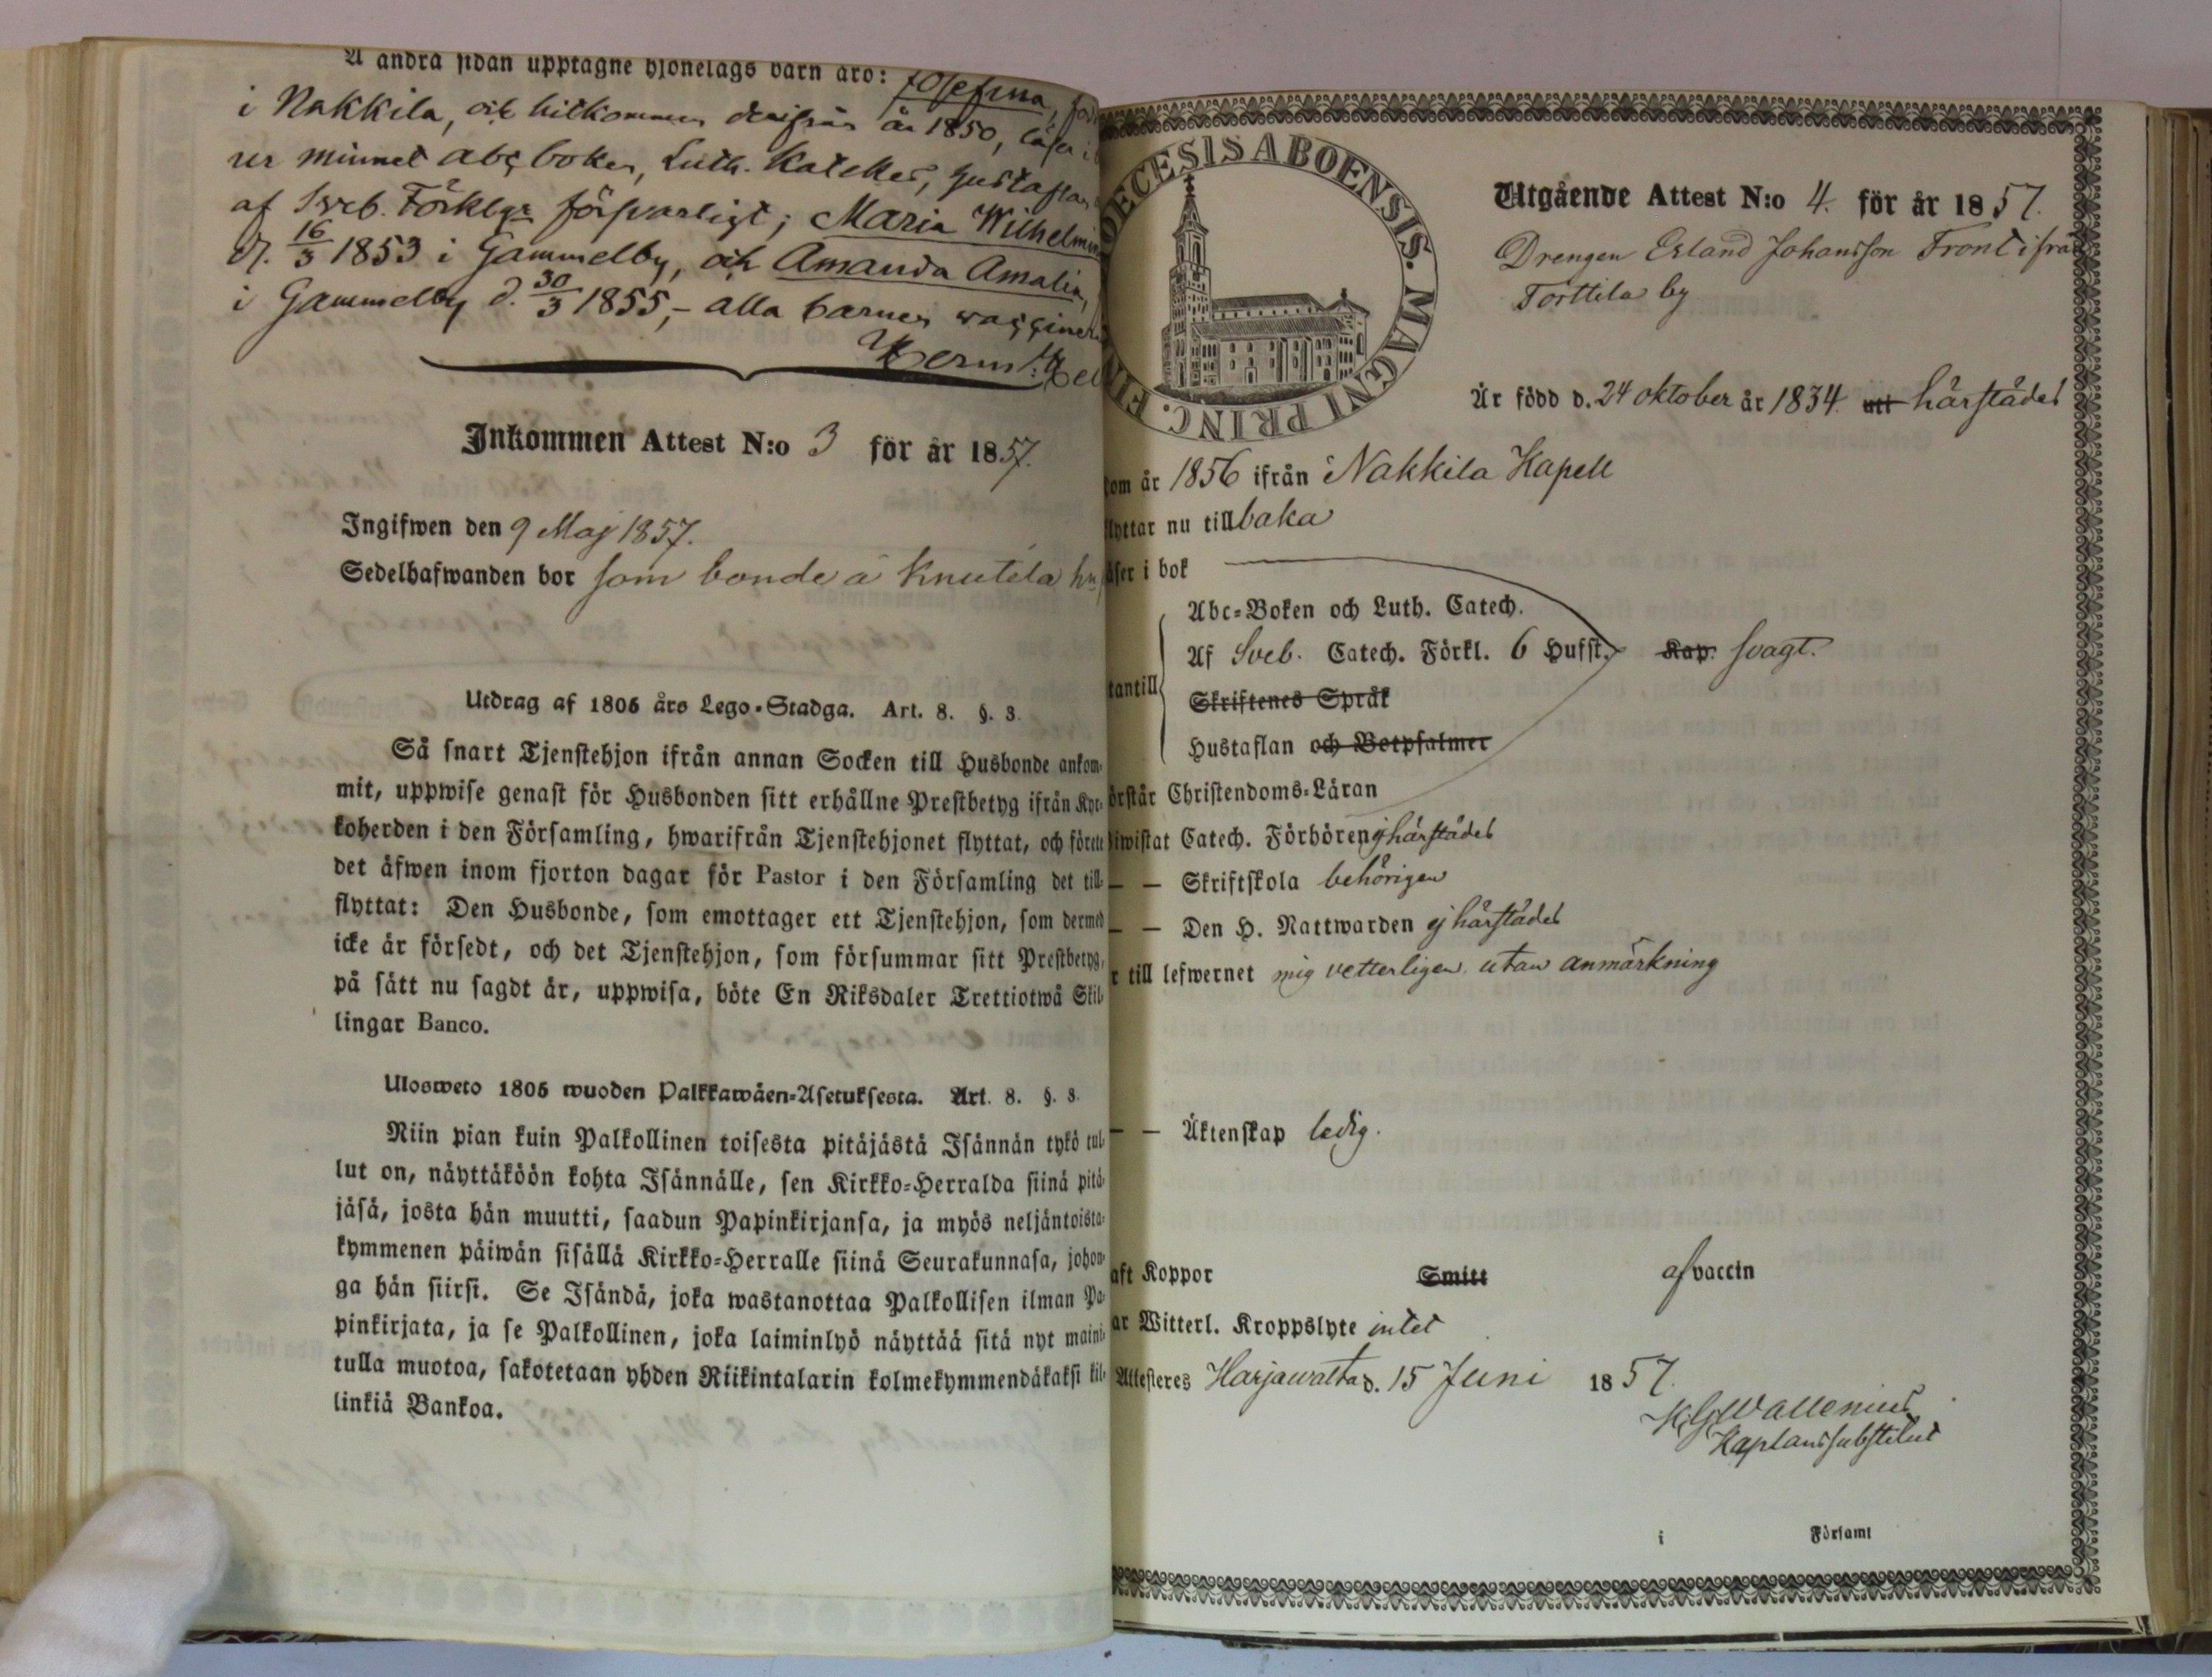 Å andra sidan upptagne hjonelags barn äro: Josefina,
i Nakkila, och hitkommen derifrån år 1850, läser i
ur minnet abc boken, Luth. Kateches, hustaflan
af Sveb. Förklgr försvarligt; Maria Wilhelmina
d. 16/3 1853 i Gammelby, och Amanda Amalia,
i Gammelby d. 30/3 1855,- alla barnen vaccinera
Herm.
Inkommen Attest N:o 3 för år 1857.
Ingifwen den 9 Maj 1857.
Sedelhafwanden bor som bonde å Knutila
Utdrag af 1805 års Lego-Stadga. Art. 8. §. 3.
Så snart Tjenstehjon ifrån annan Socken till Husbonde ankom-
mit, uppwise genast för Husbonden sitt erhållne Prestbetyg ifrån Kyr-
koherden i den Församling, hwarifrån Tjenstehjonet flyttat, och förete
det äfwen inom fjorton dagar för Pastor i den Församling det till-
flyttat: Den Husbonde, som emottager ett Tjenstehjon, som dermed
icke är försedt, och det Tjenstehjon, som försummar sitt Prestbetyg,
på sätt nu sagdt är, uppwisa, böte En Riksdaler Trettiotwå Skil-
lingar Banco.
Ulosweto 1805 wuoden Palkkawäen-Asetuksesta. Art. 8. §. 3.
Niin pian kuin Palkollinen toisesta pitäjästä Isännän tykö tul-
lut on, näyttäköön kohta Isännälle, sen Kirkko-Herralda siinä pitä-
jäsä, josta hän muutti, saadun Papinkirjansa, ja myös neljäntoista-
kymmenen päiwän sisällä Kirkko-Herralle siinä Seurakunnasa, johon-
ga hän siirsi. Se Isändä, joka wastanottaa Palkollisen ilman Pa-
pinkirjata, ja se Palkollinen, joka laiminlyö näyttää sitä nyt maini-
tulla muotoa, sakotetaan yhden Riikintalarin kolmekymmendäkaksi kil-
linkiä Bankoa.
DECESIS ABOENSIS. MAGNI PRINC. FIN
Utgående Attest N:o 4. för år 1857.
Drengen Erland Johansson Front ifrån
Torttila by
Är född d. 24 oktober år 1834. uti härstädes
kom år 1856 ifrån Nakkila Kapell
flyttar nu tillbaka
läser i bok
Abc-Boken och Luth. Catech.
Af Sveb. Catech. Förkl. 6 Hufst. Kap. svagt.
utantill
Skriftenes Språk
Hustaflan och Botpsalmer
örstår Christendoms-Läran
biwistat Catech. Förhören ej härstädes
— — Skriftskola behörigen
— — Den H. Nattwarden ej härstädes
r till lefwernet mig vetterligen utan anmärkning
— — Äktenskap ledig.
aft Koppor Smitt af vaccin
ar Witterl. Kroppslyte intet
Attesteres Harjawalta d. 15 Juni 1857.
K.G. Wallenius
Kaplanssubstitut
i Församl